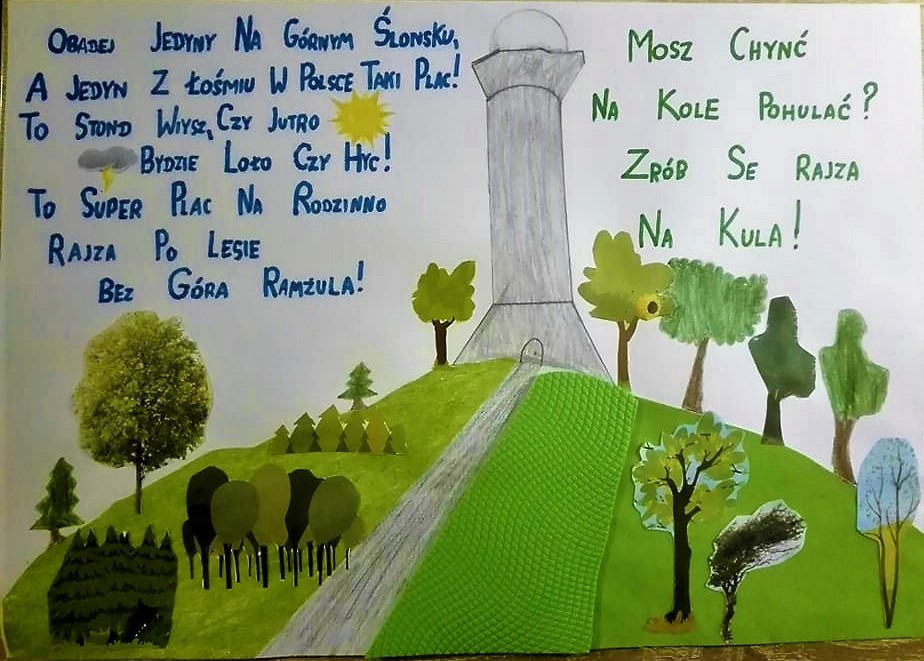 Obadej Jedyny Na Górnym Ślonsku,
A Jedyn Z Łośmiu W Polsce Taki Plac!
To Stond Wiysz, Czy Jutro
Bydzie Loło Czy Hyc!
To Super Plac Na Rodzinno
Rajza Po Lesie
Bez Góra Ramżula!
Mosz Chynć
Na Kole Pohulać?
Zrób Se Rajza
Na Kula!